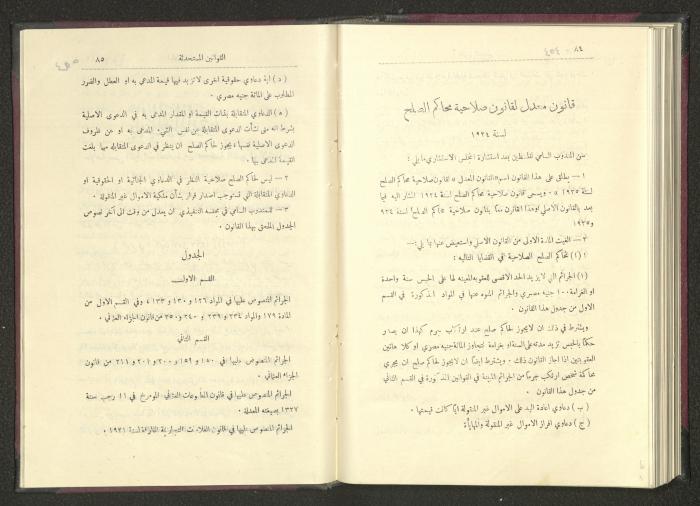 ٨٤
قانون معدل لقانون صلاحية محاكم الصلح
لسنة ١٩٢٤
سن المندوب السامي لفلسطين بعد استشارة المجلس الاستشاري ما يلي :
١ — يطلق على هذا القانون اسم «القانون المعدل لقانون صلاحية محاكم الصلح
لسنة ١٩٢٥» ويسمى قانون صلاحية محاكم الصلح لسنة ١٩٢٤ المشار اليه فيما
بعد بالقانون الاصلي وهذا القانون معاً بقانون صلاحية محاكم الصلح لسنة ٩٢٤
و١٩٢٥
٢ — الغيت المادة الاولى من القانون الاصلي واستعيض عنها بما يلي :—
١ (١) لمحاكم الصلح الصلاحية في القضايا التالية :
(١) الجرائم التي لا يزيد الحد الاقصى للعقوبة المعينة لها على الحبس سنة واحدة
او الغرامة ١٠٠ جنيه مصري والجرائم المنوه عنها في المواد المذكورة في القسم
الاول من جدول هذا القانون
ويشترط في ذلك ان لا يجوز لحاكم صلح عند ارتكاب جرم كهذا ان يصدر
حكماً بالحبس تزيد مدته على السنة او بغرامة تتجاوز المائة جنيه مصري او كلا هاتين
العقوبتين اذا اجاز القانون ذلك . ويشترط ايضاً ان لا يجوز لحاكم صلح ان يجري
محاكمة شخص ارتكب جرماً من الجرائم المبينة في القوانين المذكورة في القسم الثاني
من جدول هذا القانون
(ب) دعاوي اعادة اليد على الاموال غير المنقولة اياً كانت قيمتها .
(ج) دعاوي افراز الاموال غير المنقولة والمهايأة
القوانين المستحدثة ٨٥
(د) اية دعاوي حقوقية اخرى لا تزيد فيها قيمة المدعى به او العطل والضرر
المطلوب على المائة جنيه مصري .
(ه) الدعاوي المتقابلة بلغت القيمة او المقدار المدعى به في الدعوى الاصلية
بشرط انه متى نشأت الدعوى المتقابلة عن نفس الشيء المدعى به او عن ظروف
الدعوى الاصلية نفسها ، يجوز لحاكم الصلح ان ينظر في الدعوى المتقابلة مهما بلغت
القيمة المدعى بها .
٢ — ليس لحاكم الصلح صلاحية النظر في الدعاوي الجزائية او الحقوقية او
الدعاوي المتقابلة التي تستوجب اصدار قرار بشأن ملكية الاموال غير المنقولة .
٣ — للمندوب السامي في مجلسه التنفيذي ان يعدل من وقت الى آخر نصوص
الجدول الملحق بهذا القانون .
الجدول
القسم الاول
الجرائم المنصوص عليها في المواد ١٢٦ و ١٣٠ و ١٣٣ ، وفي القسم الاول من
المادة ١٧٩ والمواد ٢٣٤ و ٢٣٩ و ٢٤٠ و ٢٥٠ من قانون الجزاء العثماني .
القسم الثاني
الجرائم المنصوص عليها في ١٥٠ و ١٥٩ و ٢٠٠ و ٢٠١ و ٢١١ من قانون
الجزاء العثماني .
الجرائم المنصوص عليها في قانون المطبوعات العثماني المورخ في ١١ رجب سنة
١٣٢٧ بصيغته المعدلة .
الجرائم المنصوص عليها في قانون العلامات التجارية الفارقة لسنة ١٩٢١ .